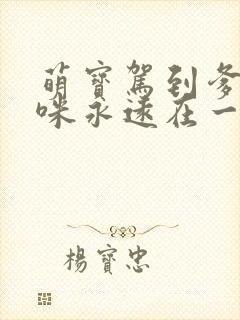 萌寶駕到爹
咪永遠在一
楊寶忠